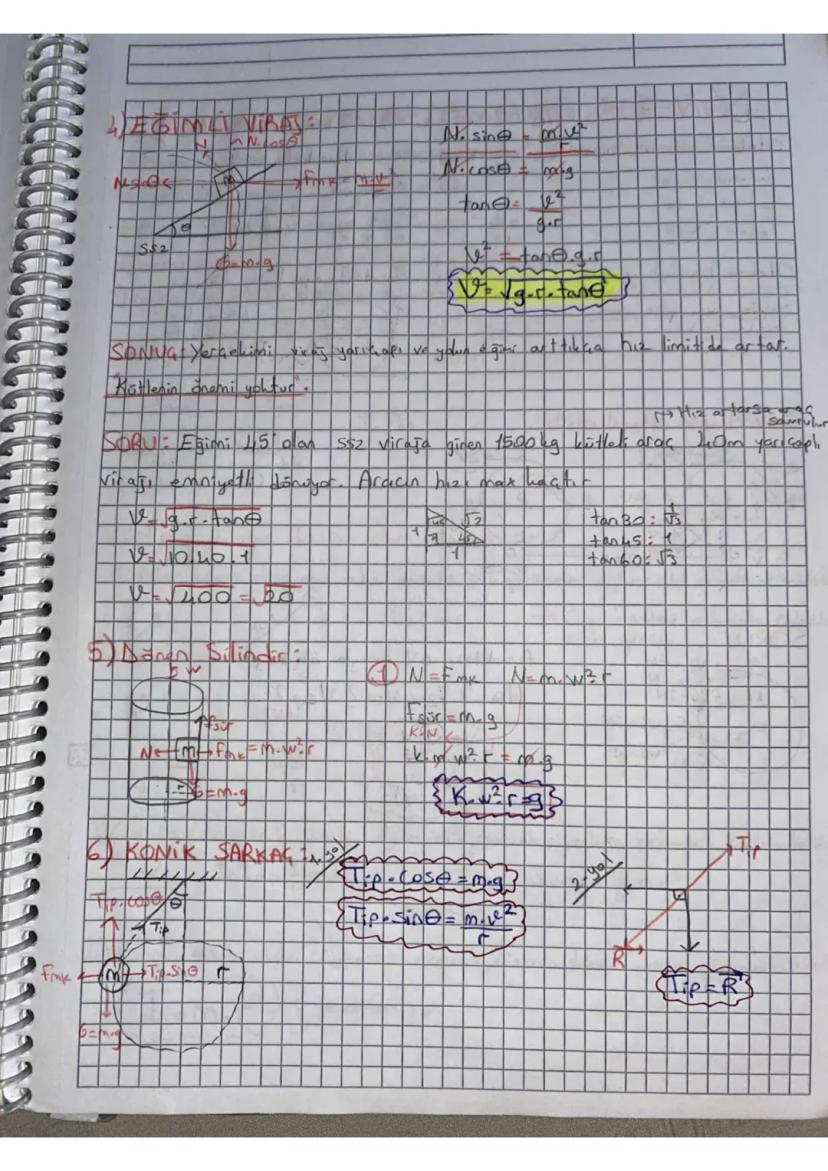 4) EĞİMLİ VİRAJ:
N N.cosθ
N.sinθ m Fmk = m.v²/r
θ
SSZ
G=m.g
N.sinθ = m.v²/r
N.cosθ = m.g
tanθ = v²/g.r
v² = tanθ.g.r
V=√g.r.tanθ
SONUÇ: Yerçekimi viraj yarıçapı ve yolun eğimi arttıkça hız limitide artar.
"Kütlenin önemi yoktur".
→ Hız artarsa araç savrulur
SORU: Eğimi 45° olan SSZ viraja giren 1500 kg kütleli araç 40m yarıçaplı
virajı emniyetli dönüyor. Aracın hızı max kaçtır
V=√g.r.tanθ
V=√10.40.1
V=√400 = √20
45 √2
1 45
1
tan30: 1/√3
tan45: 1
tan60: √3
5) Dönen Silindir:
w
fsür
N m Fmk = m.w².r
G=m.g
1 N=Fmk N=m.w².r
Fsür=m.g
K.N
k.m.w².r = m.g
K.w².r=g
6) KONİK SARKAÇ: 1.yol
Tip.cosθ θ
Tip
Fmk m Tip.Sinθ r
G=m.g
Tip.cosθ=m.g
Tip.sinθ=m.v²/r
2.yol
Tip
R
Tip=R